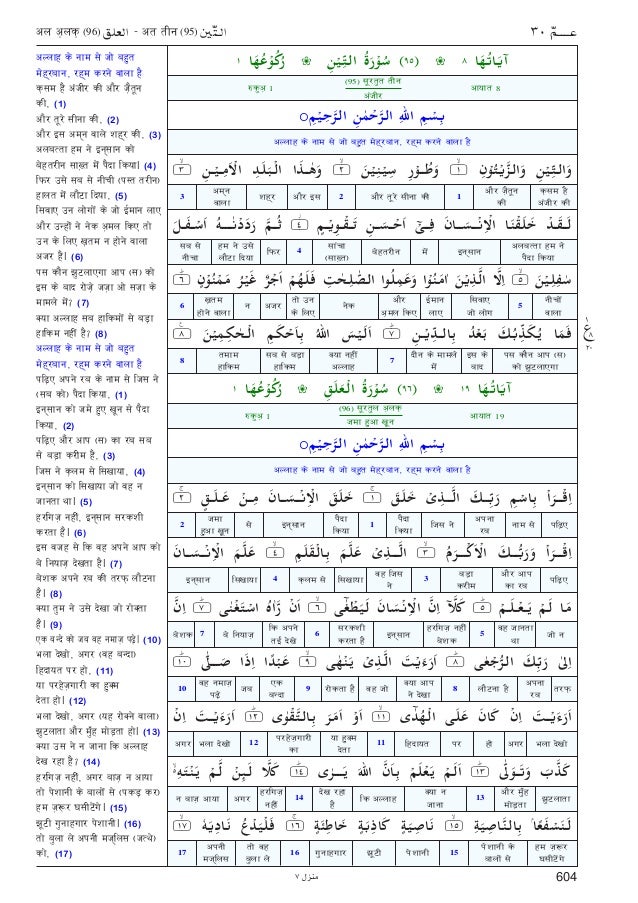 अल अलक़ (96) العلق - अत तीन (95) التّين
عـمّ ٣٠
अल्लाह के नाम से जो बहुत
मेह्रबान, रह्म करने वाला है
क़सम है अंजीर की और जै़तून
की, (1)
और तूरे सीना की, (2)
और इस अम्न वाले शहर की, (3)
अलबत्ता हम ने इन्सान को
बेहतरीन साख़्त में पैदा किया। (4)
फिर उसे सब से नीची (पस्त तरीन)
हालत में लौटा दिया, (5)
सिवाए उन लोगों के जो ईमान लाए
और उन्हों ने नेक अ़मल किए तो
उन के लिए ख़तम न होने वाला
अजर है। (6)
पस कौन झुटलाएगा आप (स) को
इस के बाद रोज़े जज़ा ओ सज़ा के
मामले में? (7)
क्या अल्लाह सब हाकिमों से बड़ा
हाकिम नहीं है? (8)
अल्लाह के नाम से जो बहुत
मेह्रबान, रह्म करने वाला है
पढ़िए अपने रब के नाम से जिस ने
(सब को) पैदा किया, (1)
इन्सान को जमे हुए ख़ून से पैदा
किया, (2)
पढ़िए और आप (स) का रब सब
से बड़ा करीम है, (3)
जिस ने क़लम से सिखाया, (4)
इन्सान को सिखाया जो वह न
जानता था। (5)
हरगिज़ नहीं, इन्सान सरकशी
करता है। (6)
इस वजह से कि वह अपने आप को
बे नियाज़ देखता है। (7)
बेशक अपने रब की तरफ़ लौटना
है। (8)
क्या तुम ने उसे देखा जो रोक्ता
है। (9)
एक बन्दे को जब वह नमाज़ पढ़े। (10)
भला देखो, अगर (वह बन्दा)
हिदायत पर हो, (11)
या परहेज़गारी का हुक्म
देता हो। (12)
भला देखो, अगर (यह रोक्ने वाला)
झुटलाता और मुँह मोड़ता हो। (13)
क्या उस ने न जाना कि अल्लाह
देख रहा है? (14)
हरगिज़ नहीं, अगर बाज़ न आया
तो पेशानी के बालों से (पकड़ कर)
हम ज़रूर घसीटेंगे। (15)
झूटी गुनाहगार पेशानी। (16)
तो बुला ले अपनी मज्लिस (जत्थे)
को, (17)
اٰيَاتُهَا ٨ ❀ (٩٥) سُوْرَةُ التِّيْنِ ❀ رُكُوْعُهَا ١
रुकुअ़ 1 (95) सूरतुत तीन आयात 8
अंजीर
بِسْمِ اللهِ الرَّحْمٰنِ الرَّحِيْمِ ○
अल्लाह के नाम से जो बहुत मेह्रबान, रह्म करने वाला है
وَالتِّيْنِ وَالزَّيْتُوْنِ ١ وَطُوْرِ سِيْنِيْنَ ٢ وَهٰذَا الْبَلَدِ الْاَمِيْنِ ٣
3 अम्न वाला शहर और इस 2 और तूरे सीना की 1 और जै़तून की क़सम है अंजीर की
لَقَدْ خَلَقْنَا الْاِنْسَانَ فِيْٓ اَحْسَنِ تَقْوِيْمٍ ٤ ثُمَّ رَدَدْنٰهُ اَسْفَلَ
सब से नीचा हम ने उसे लौटा दिया फिर 4 सांचा (साख़्त) बेहतरीन में इन्सान अलबत्ता हम ने पैदा किया
سٰفِلِيْنَ ٥ اِلَّا الَّذِيْنَ اٰمَنُوْا وَعَمِلُوا الصّٰلِحٰتِ فَلَهُمْ اَجْرٌ غَيْرُ مَمْنُوْنٍ ٦
6 ख़तम होने वाला न अजर तो उन के लिए नेक और अ़मल किए ईमान लाए सिवाए जो लोग 5 नीचों वाला
فَمَا يُكَذِّبُكَ بَعْدُ بِالدِّيْنِ ٧ اَلَيْسَ اللهُ بِاَحْكَمِ الْحٰكِمِيْنَ ٨
8 तमाम हाकिम सब से बड़ा हाकिम क्या नहीं अल्लाह 7 दीन के मामले में इस के बाद पस कौन आप (स) को झुटलाएगा
اٰيَاتُهَا ١٩ ❀ (٩٦) سُوْرَةُ الْعَلَقِ ❀ رُكُوْعُهَا ١
रुकुअ़ 1 (96) सूरतुल अ़लक़ आयात 19
जमा हुआ ख़ून
بِسْمِ اللهِ الرَّحْمٰنِ الرَّحِيْمِ ○
अल्लाह के नाम से जो बहुत मेह्रबान, रह्म करने वाला है
اِقْرَاْ بِاسْمِ رَبِّكَ الَّذِيْ خَلَقَ ١ خَلَقَ الْاِنْسَانَ مِنْ عَلَقٍ ٢
2 जमा हुआ ख़ून से इन्सान पैदा किया 1 पैदा किया जिस ने अपना रब नाम से पढ़िए
اِقْرَاْ وَرَبُّكَ الْاَكْرَمُ ٣ الَّذِيْ عَلَّمَ بِالْقَلَمِ ٤ عَلَّمَ الْاِنْسَانَ
इन्सान सिखाया 4 क़लम से सिखाया वह जिस ने 3 बड़ा करीम और आप का रब पढ़िए
مَا لَمْ يَعْلَمْ ٥ كَلَّآ اِنَّ الْاِنْسَانَ لَيَطْغٰٓى ٦ اَنْ رَّاٰهُ اسْتَغْنٰى ٧ اِنَّ
बेशक 7 बे नियाज़ कि अपने तईं देखे 6 सरकशी करता है इन्सान हरगिज़ नहीं बेशक 5 वह जानता था जो न
اِلٰى رَبِّكَ الرُّجْعٰى ٨ اَرَءَيْتَ الَّذِيْ يَنْهٰى ٩ عَبْدًا اِذَا صَلّٰى ١٠
10 वह नमाज़ पढ़े जब एक बन्दा 9 रोकता है वह जो क्या आप ने देखा 8 लौटना है अपना रब तरफ़
اَرَءَيْتَ اِنْ كَانَ عَلَى الْهُدٰٓى ١١ اَوْ اَمَرَ بِالتَّقْوٰى ١٢ اَرَءَيْتَ اِنْ
अगर भला देखो 12 परहेज़गारी का या हुक्म देता 11 हिदायत पर हो अगर भला देखो
كَذَّبَ وَتَوَلّٰى ١٣ اَلَمْ يَعْلَمْ بِاَنَّ اللهَ يَرٰى ١٤ كَلَّا لَئِنْ لَّمْ يَنْتَهِ
न बाज़ आया अगर हरगिज़ नहीं 14 देख रहा है कि अल्लाह क्या न जाना 13 और मुँह मोड़ता झुटलाता
لَنَسْفَعًا بِالنَّاصِيَةِ ١٥ نَاصِيَةٍ كَاذِبَةٍ خَاطِئَةٍ ١٦ فَلْيَدْعُ نَادِيَهٗ ١٧
17 अपनी मजलिस तो वह बुला ले 16 गुनाहगार झूटी पेशानी 15 पेशानी के बालों से हम ज़रूर घसीटेंगे
منزل ٧
604